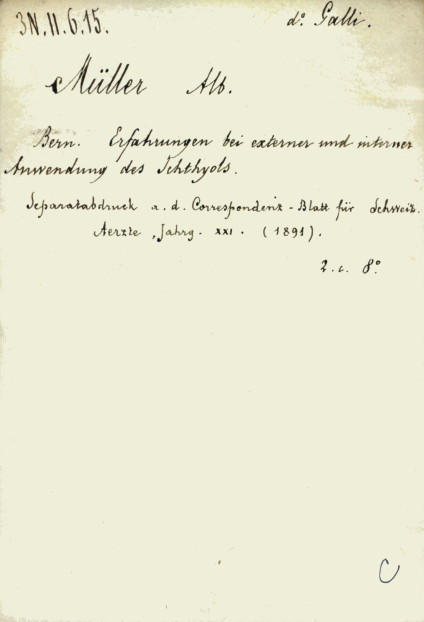 3N.11.6.15.
d.º Galli.
Müller Alb.
Bern. Erfahrungen bei externer und interner
Anwendung des Ichthyols.
Separatabdruck a. d. Correspondenz-Blatt für Schweiz.
Aerzte, Jahrg. XXI. (1891).
2. c. 8º
C